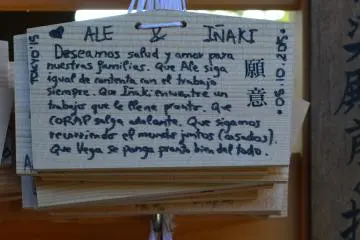 ALE & IÑAKI
TOKYO '15
Deseamos salud y amor para
nuestras familias. Que Ale siga
igual de contenta con el trabajo
siempre. Que Iñaki encuentre un
trabajo que le llene pronto. Que
CORAP salga adelante. Que sigamos
recorriendo el mundo juntos (casados).
Que Vega se ponga pronto bien del todo.
願意
05.10.2015